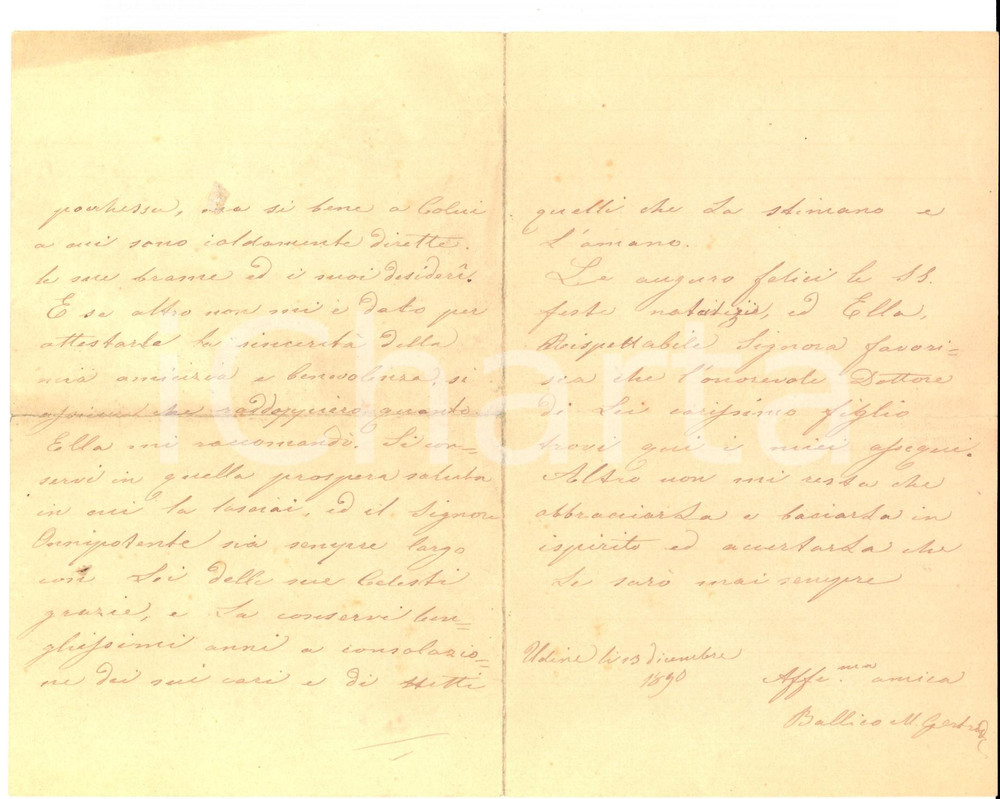 ma si bene a Colui
a cui sono caldamente dirette
le sue brame ed i suoi desiderî.
E se altro non mi è dato per
attestarle la sincerità della
mia amicizia e benevolenza, si
che raddoppierò quanto
Ella mi raccomandò. Si con=
servi in quella prospera salute
in cui la lasciai, ed il Signore
Onnipotente sia sempre largo
con Lei delle sue Celesti
grazie, e La conservi lun=
ghissimi anni a consolazio=
ne dei suoi cari e di tutti
quelli che La stimano e
L'amano.
Le auguro felici le SS.
feste natalizie, ed Ella,
Rispettabile Signora favori=
sca che l'onorevole Dottore
di Lei carissimo figlio
trovi qui i miei ossequi.
Altro non mi resta che
abbracciarLa e baciarLa in
ispirito ed accertarLa che
Le sarò mai sempre
Udine li 13 dicembre
1890
Affe.ma amica
Ballico M. Gertrude
iCharta